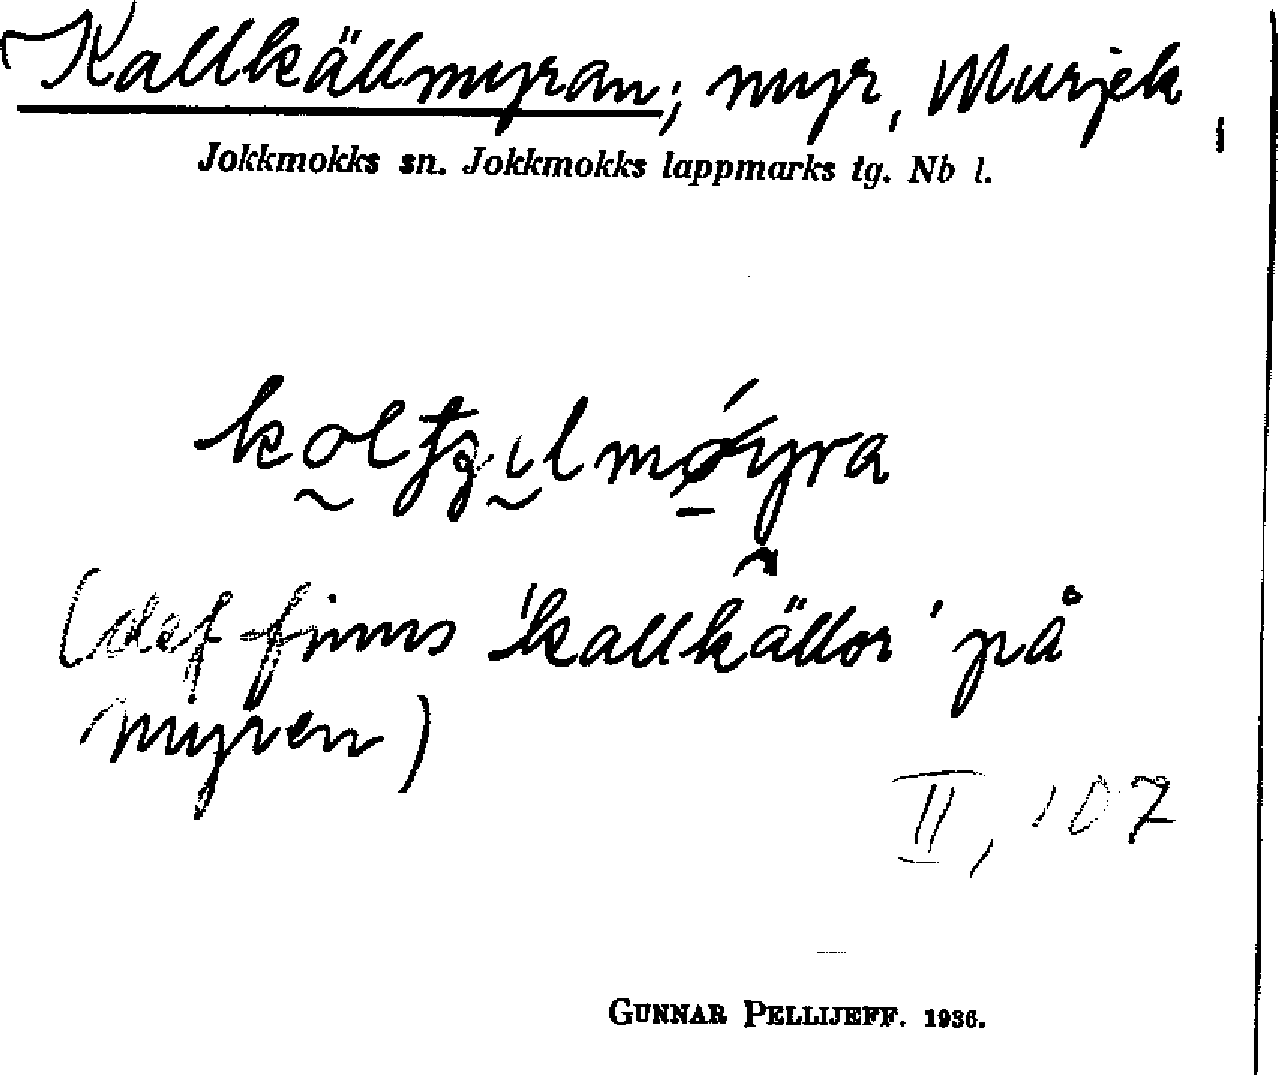 Kallkällmyran; myr, Murjek,
Jokkmokks sn. Jokkmokks lappmarks tg. Nb l.
(det finns 'kallkällor' på
myren)
II, 107
GUNNAR PELLIJEFF. 1936.